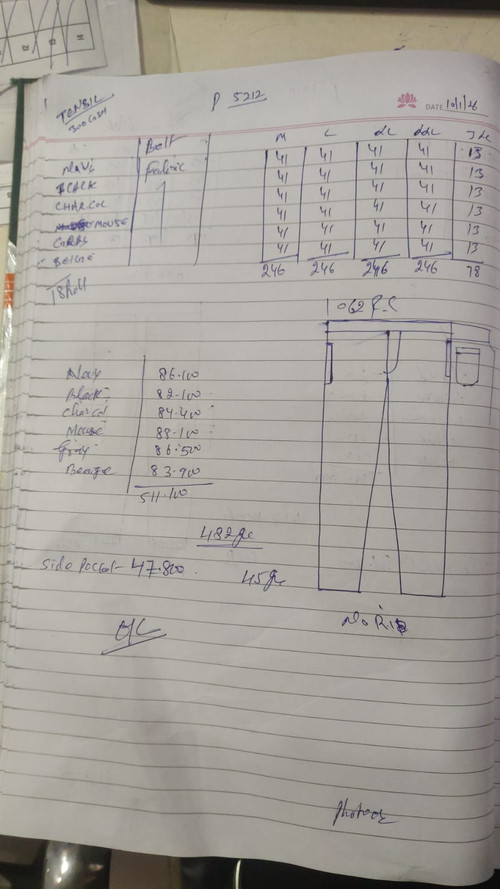 P 5212
DATE 10/1/26
TENSIL
300 GSM
Belt M L XL XXL 3XL
NAVI Fabric 41 41 41 41 13
BLACK 1 41 41 41 41 13
CHARCOL 41 41 41 41 13
MOUSE 41 41 41 41 13
GRAY 41 41 41 41 13
BEIGE 41 41 41 41 13
246 246 246 246 78
1062 P.C
Navy 86.100
Black 82.100
Charcol 84.400
Mouse
Gray 86.500
Beige 83.900
511.100
482 gr
Side Pocket - 47.800 45 gr
No RIB